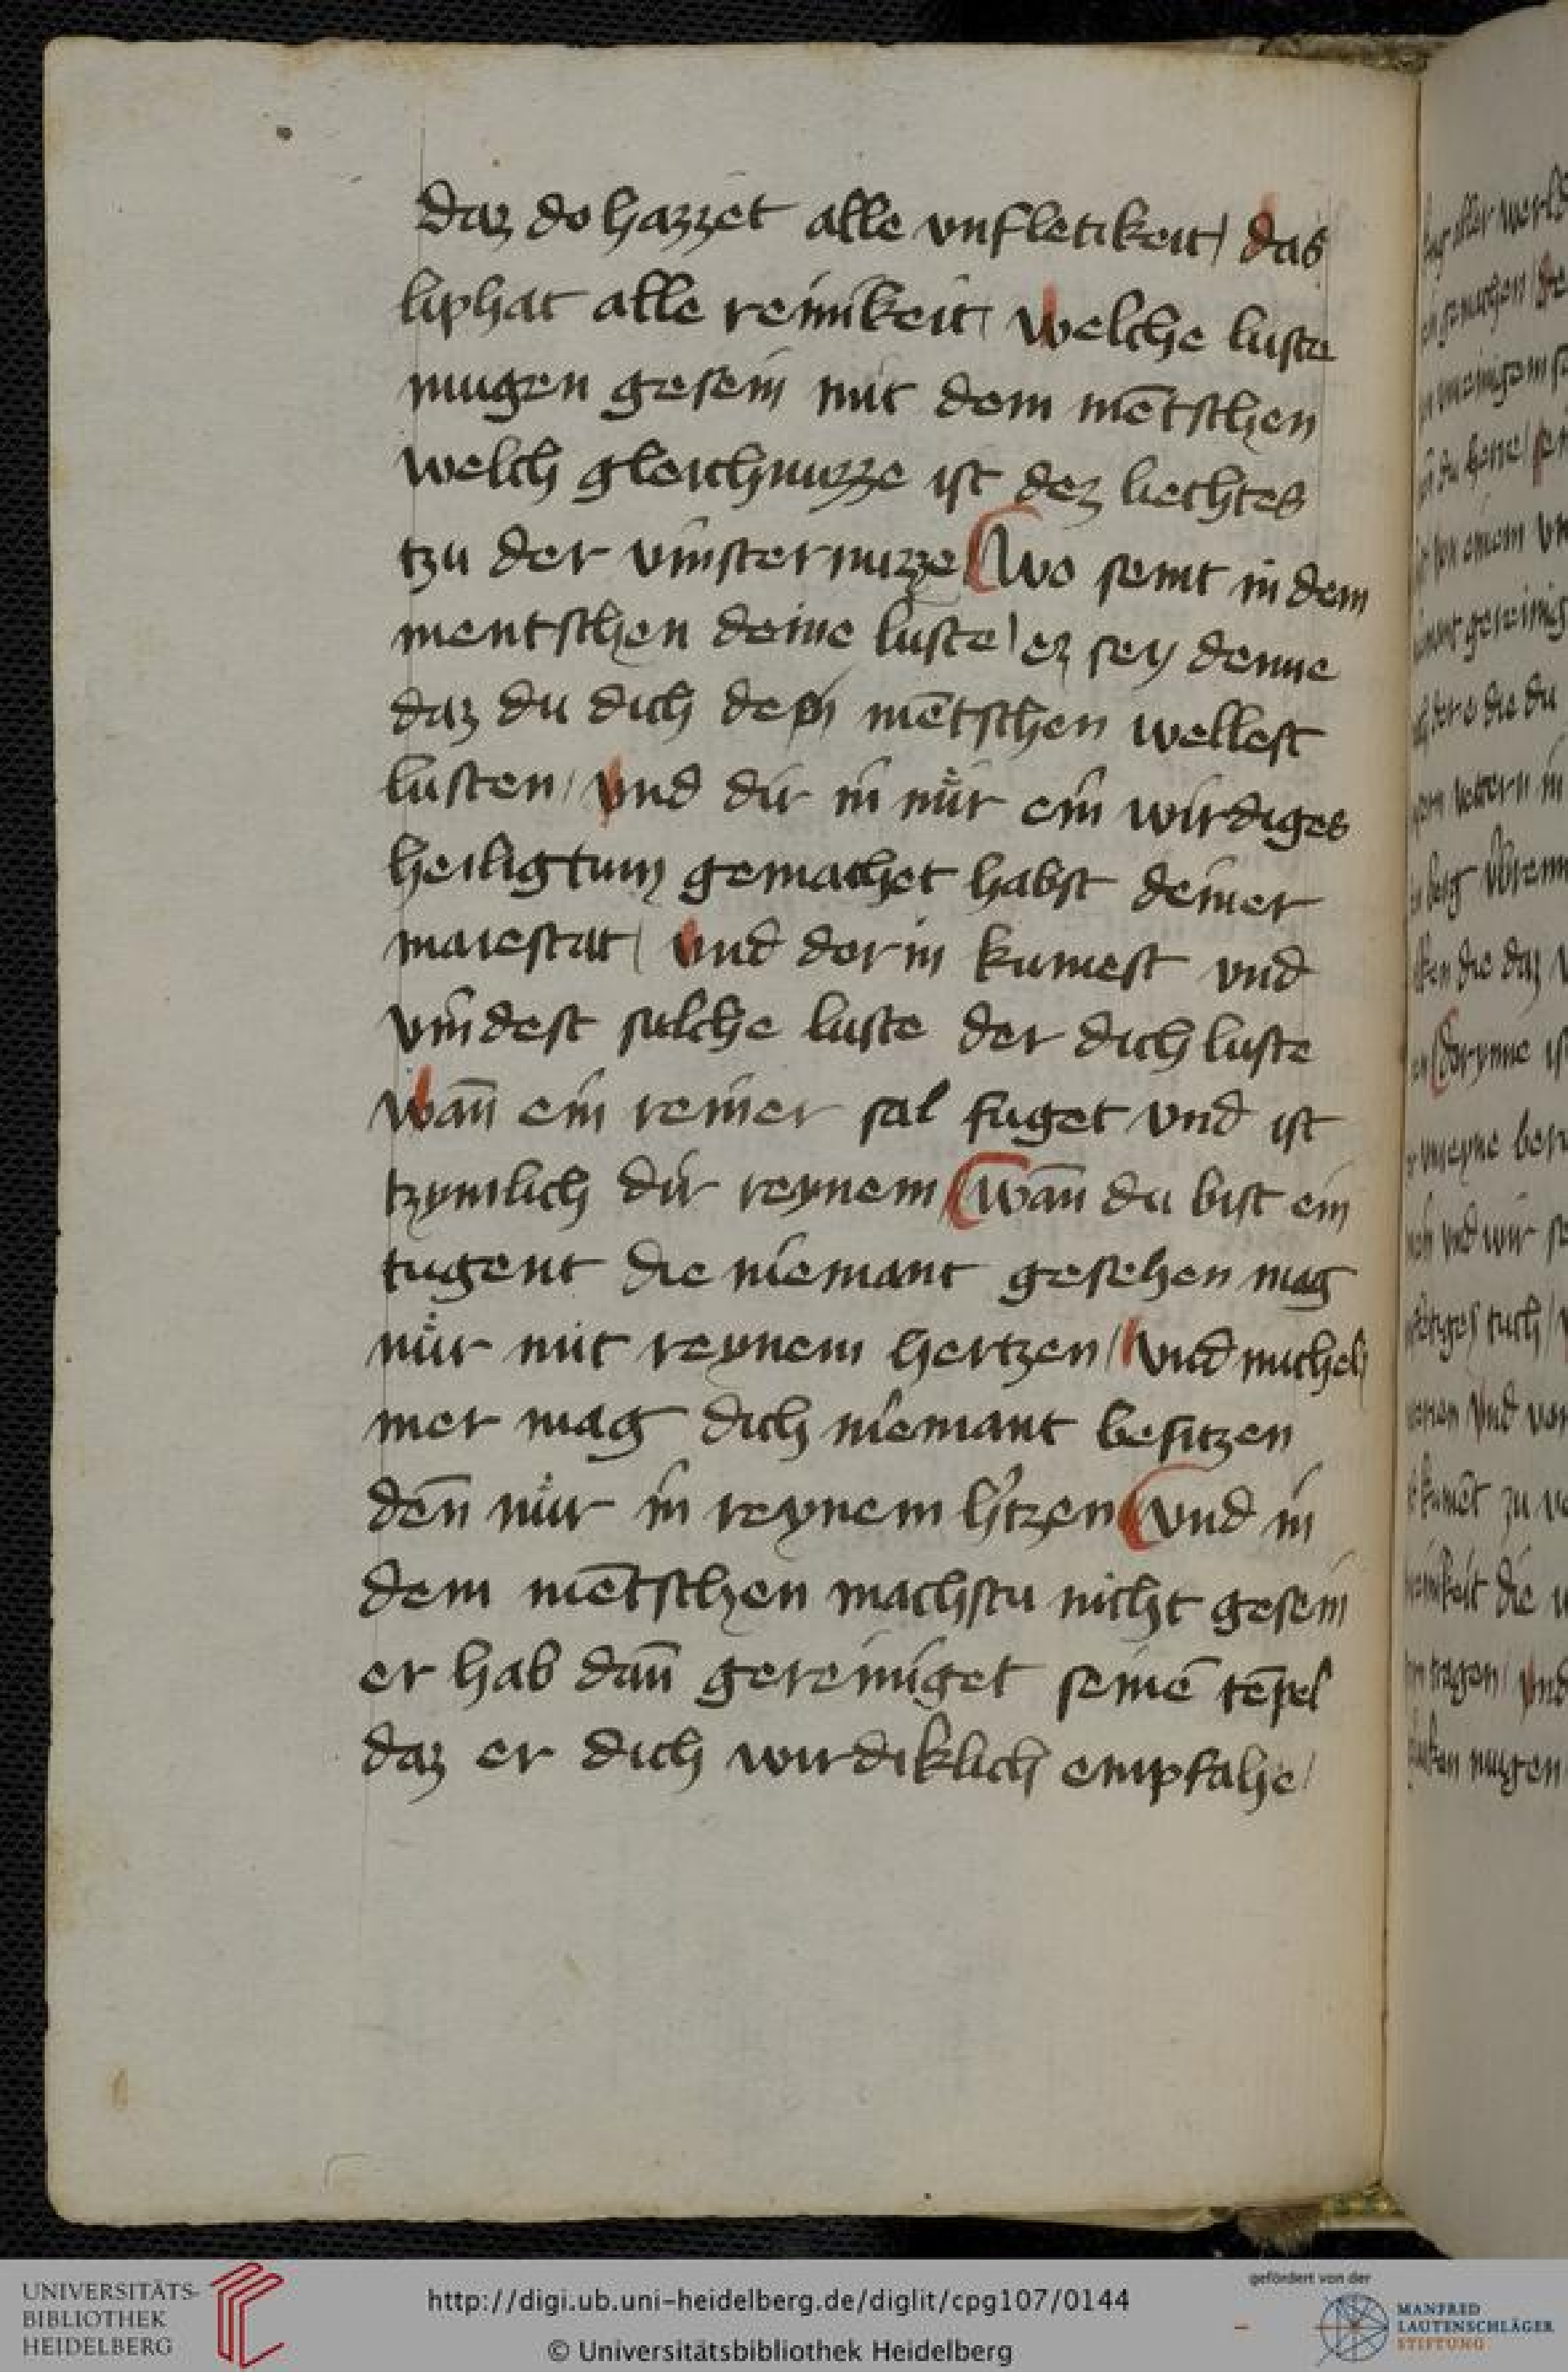 daz do hazzet alle vnfletikeit / das
liphat alle reinikeit / welche luste
mugen gesein mit dem mētschen
welch gleichnuzze ist dez liechtes
tzu der vinsternuzze / Wo seint in dem
mentschen deine luste / ez sey denne
daz du dich dem mētschen wellest
lusten / vnd dir in mir ein wirdiges
heiligtum gemachet habst deiner
maiestat / vnd dor in kumest vnd
vindest sulche luste der dich luste
wān ein reiner sal fuget vnd ist
tzymlich dir reynem / Wān du bist ein
tugent die niemant gesehen mag
nůr mit reynem hertzen / vnd michel
mer mag dich niemant besitzen
dēn nůr in reynem h'tzen / vnd in
dem mētschen machstu nicht gesein
er hab dān gereiniget seinē tēpel
daz er dich wirdiklich empfahe /
UNIVERSITÄTS-
BIBLIOTHEK
HEIDELBERG
http://digi.ub.uni-heidelberg.de/diglit/cpg107/0144
© Universitätsbibliothek Heidelberg
gefördert von der
MANFRED
LAUTENSCHLÄGER
STIFTUNG